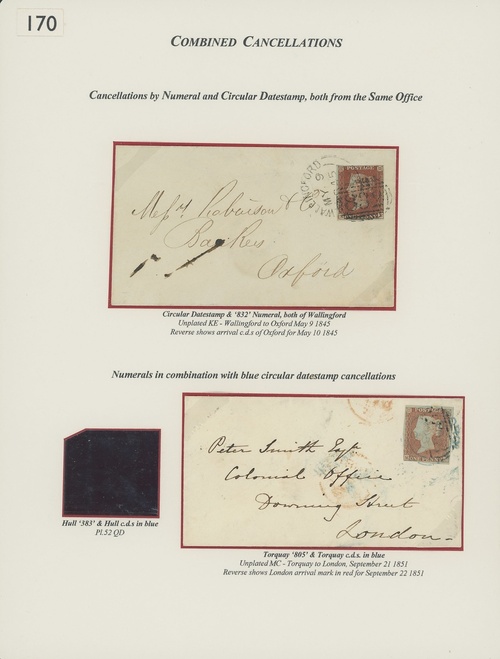 170
COMBINED CANCELLATIONS
Cancellations by Numeral and Circular Datestamp, both from the Same Office
WALLINGFORD
MY 9
1845
POSTAGE
Messrs Robinson & Co
Bankers
Oxford
Circular Datestamp & '832' Numeral, both of Wallingford
Unplated KE - Wallingford to Oxford May 9 1845
Reverse shows arrival c.d.s of Oxford for May 10 1845
Numerals in combination with blue circular datestamp cancellations
POSTAGE
Peter Smith Esqr
Colonial Office
Downing Street
London
Hull '383' & Hull c.d.s in blue
Pl.52 QD
Torquay '805' & Torquay c.d.s. in blue
Unplated MC - Torquay to London, September 21 1851
Reverse shows London arrival mark in red for September 22 1851